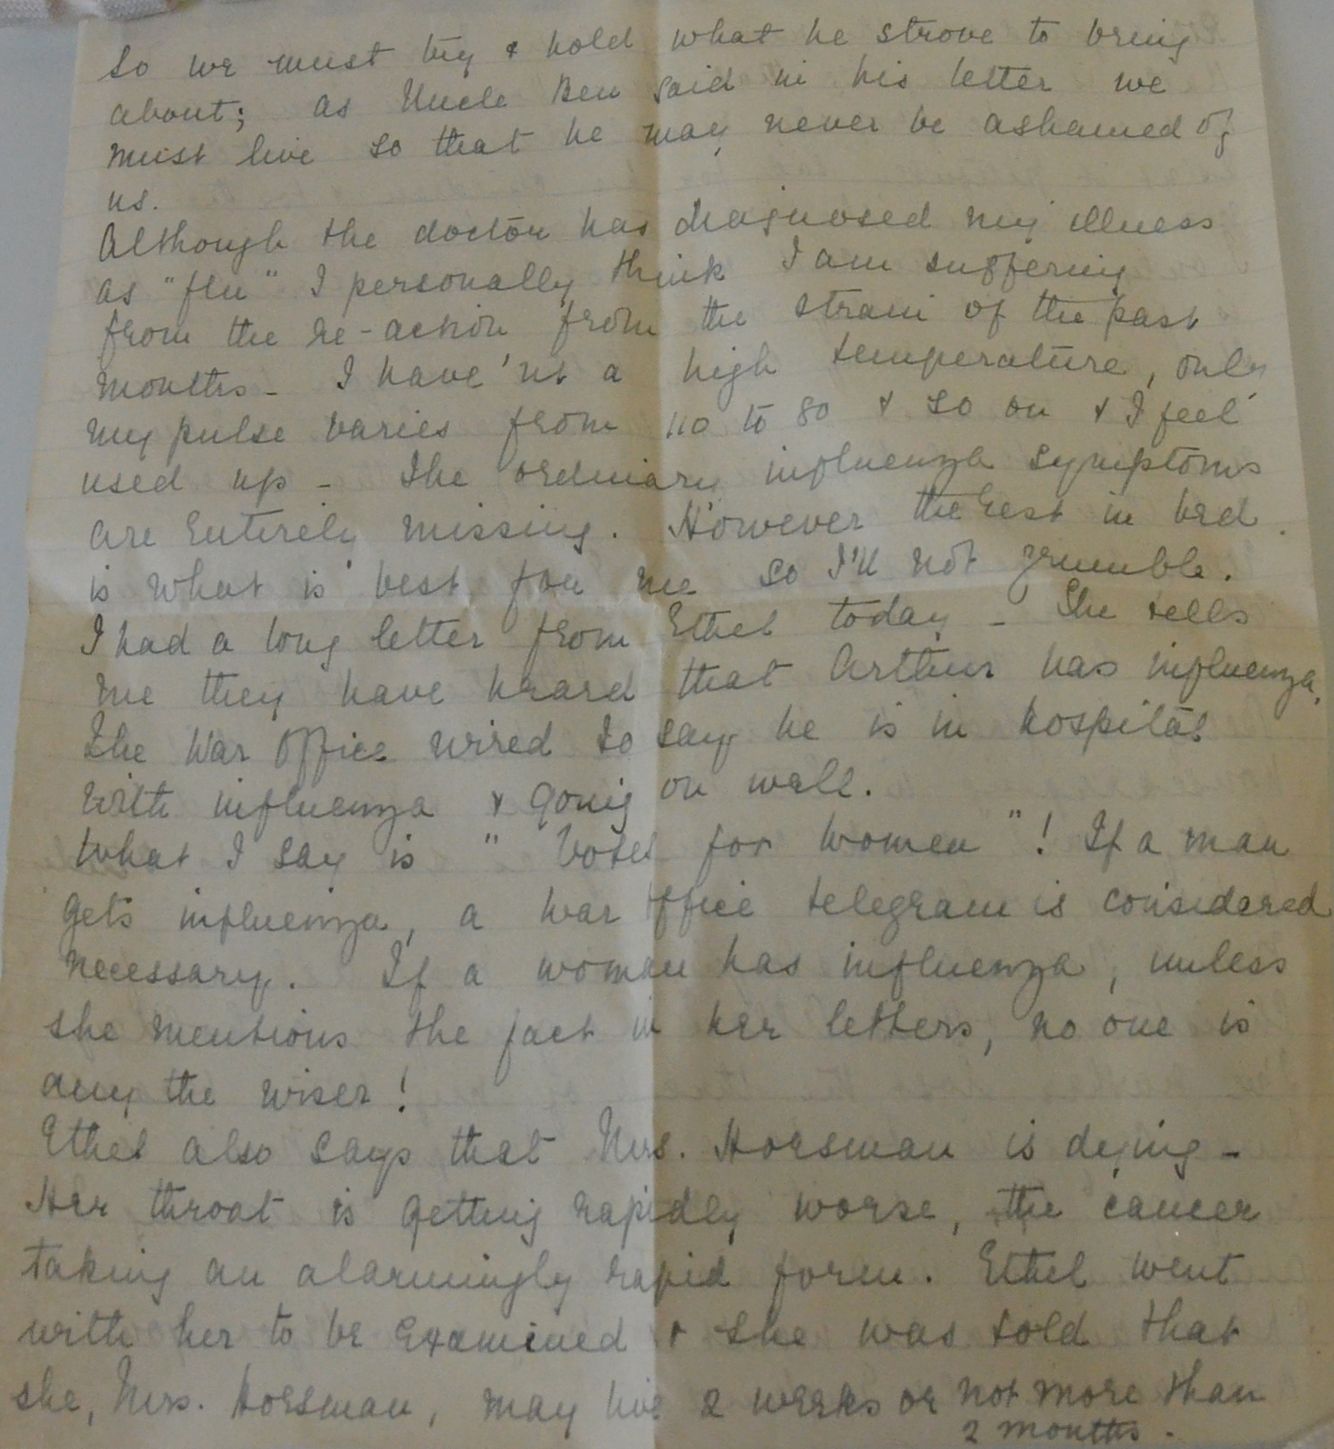 So we must try & hold what he strove to bring
about; as Uncle Ben said in his letter we
must live so that he may never be ashamed of
us.
Although the doctor has diagnosed my illness
as "flu" I personally think I am suffering
from the re-action from the strain of the past
months - I have'nt a high temperature, only
my pulse varies from 110 to 80 & so on & I feel
used up - The ordinary influenza symptoms
are entirely missing. However the rest in bed
is what is best for me so I'll not grumble.
I had a long letter from Ethel today - She tells
me they have heard that Arthur has influenza.
The War Office wired to say he is in hospital
with influenza & going on well.
What I say is " Votes for Women "! If a man
gets influenza, a War Office telegram is considered
necessary. If a woman has influenza, unless
she mentions the fact in her letters, no one is
any the wiser!
Ethel also says that Mrs. Horsman is dying -
Her throat is getting rapidly worse, the cancer
taking an alarmingly rapid form. Ethel went
with her to be examined & she was told that
she, Mrs. Horsman, may live 2 weeks or not more than
2 months.